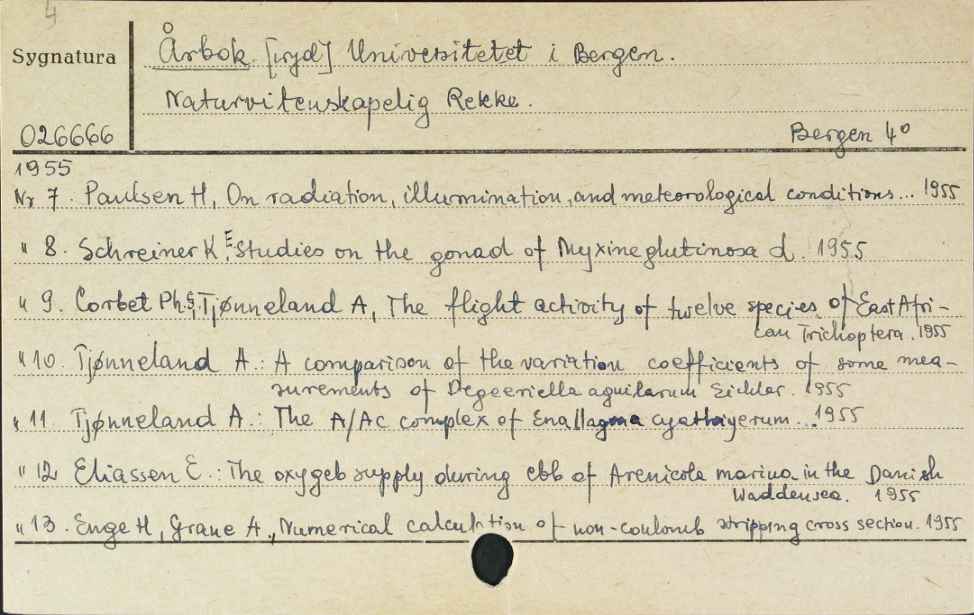 4
Sygnatura
Årbok. [wyd] Universitetet i Bergen.
Naturvitenskapelig Rekke.
026666
Bergen 4°
1955
Nr 7. Paulsen H, On radiation, illumination, and meteorological conditions... 1955
" 8. Schreiner K E, Studies on the gonad of Myxine glutinosa d. 1955
" 9. Corbet Ph. S. Tjønneland A, The flight activity of twelve species of East Afri-
can Trichoptera. 1955
" 10. Tjønneland A.: A comparison of the variation coefficients of some mea-
surements of Degeeriella aquilarum Eichler. 1955
" 11. Tjønneland A.: The A/Ac complex of Enallagma 1955
" 12 Eliassen E.: The oxygeb supply during ebb of Arenicola marina in the Danish
Waddensea. 1955
" 13. Enge H, Graue A., Numerical calculation of non-coulomb stripping cross section. 1955